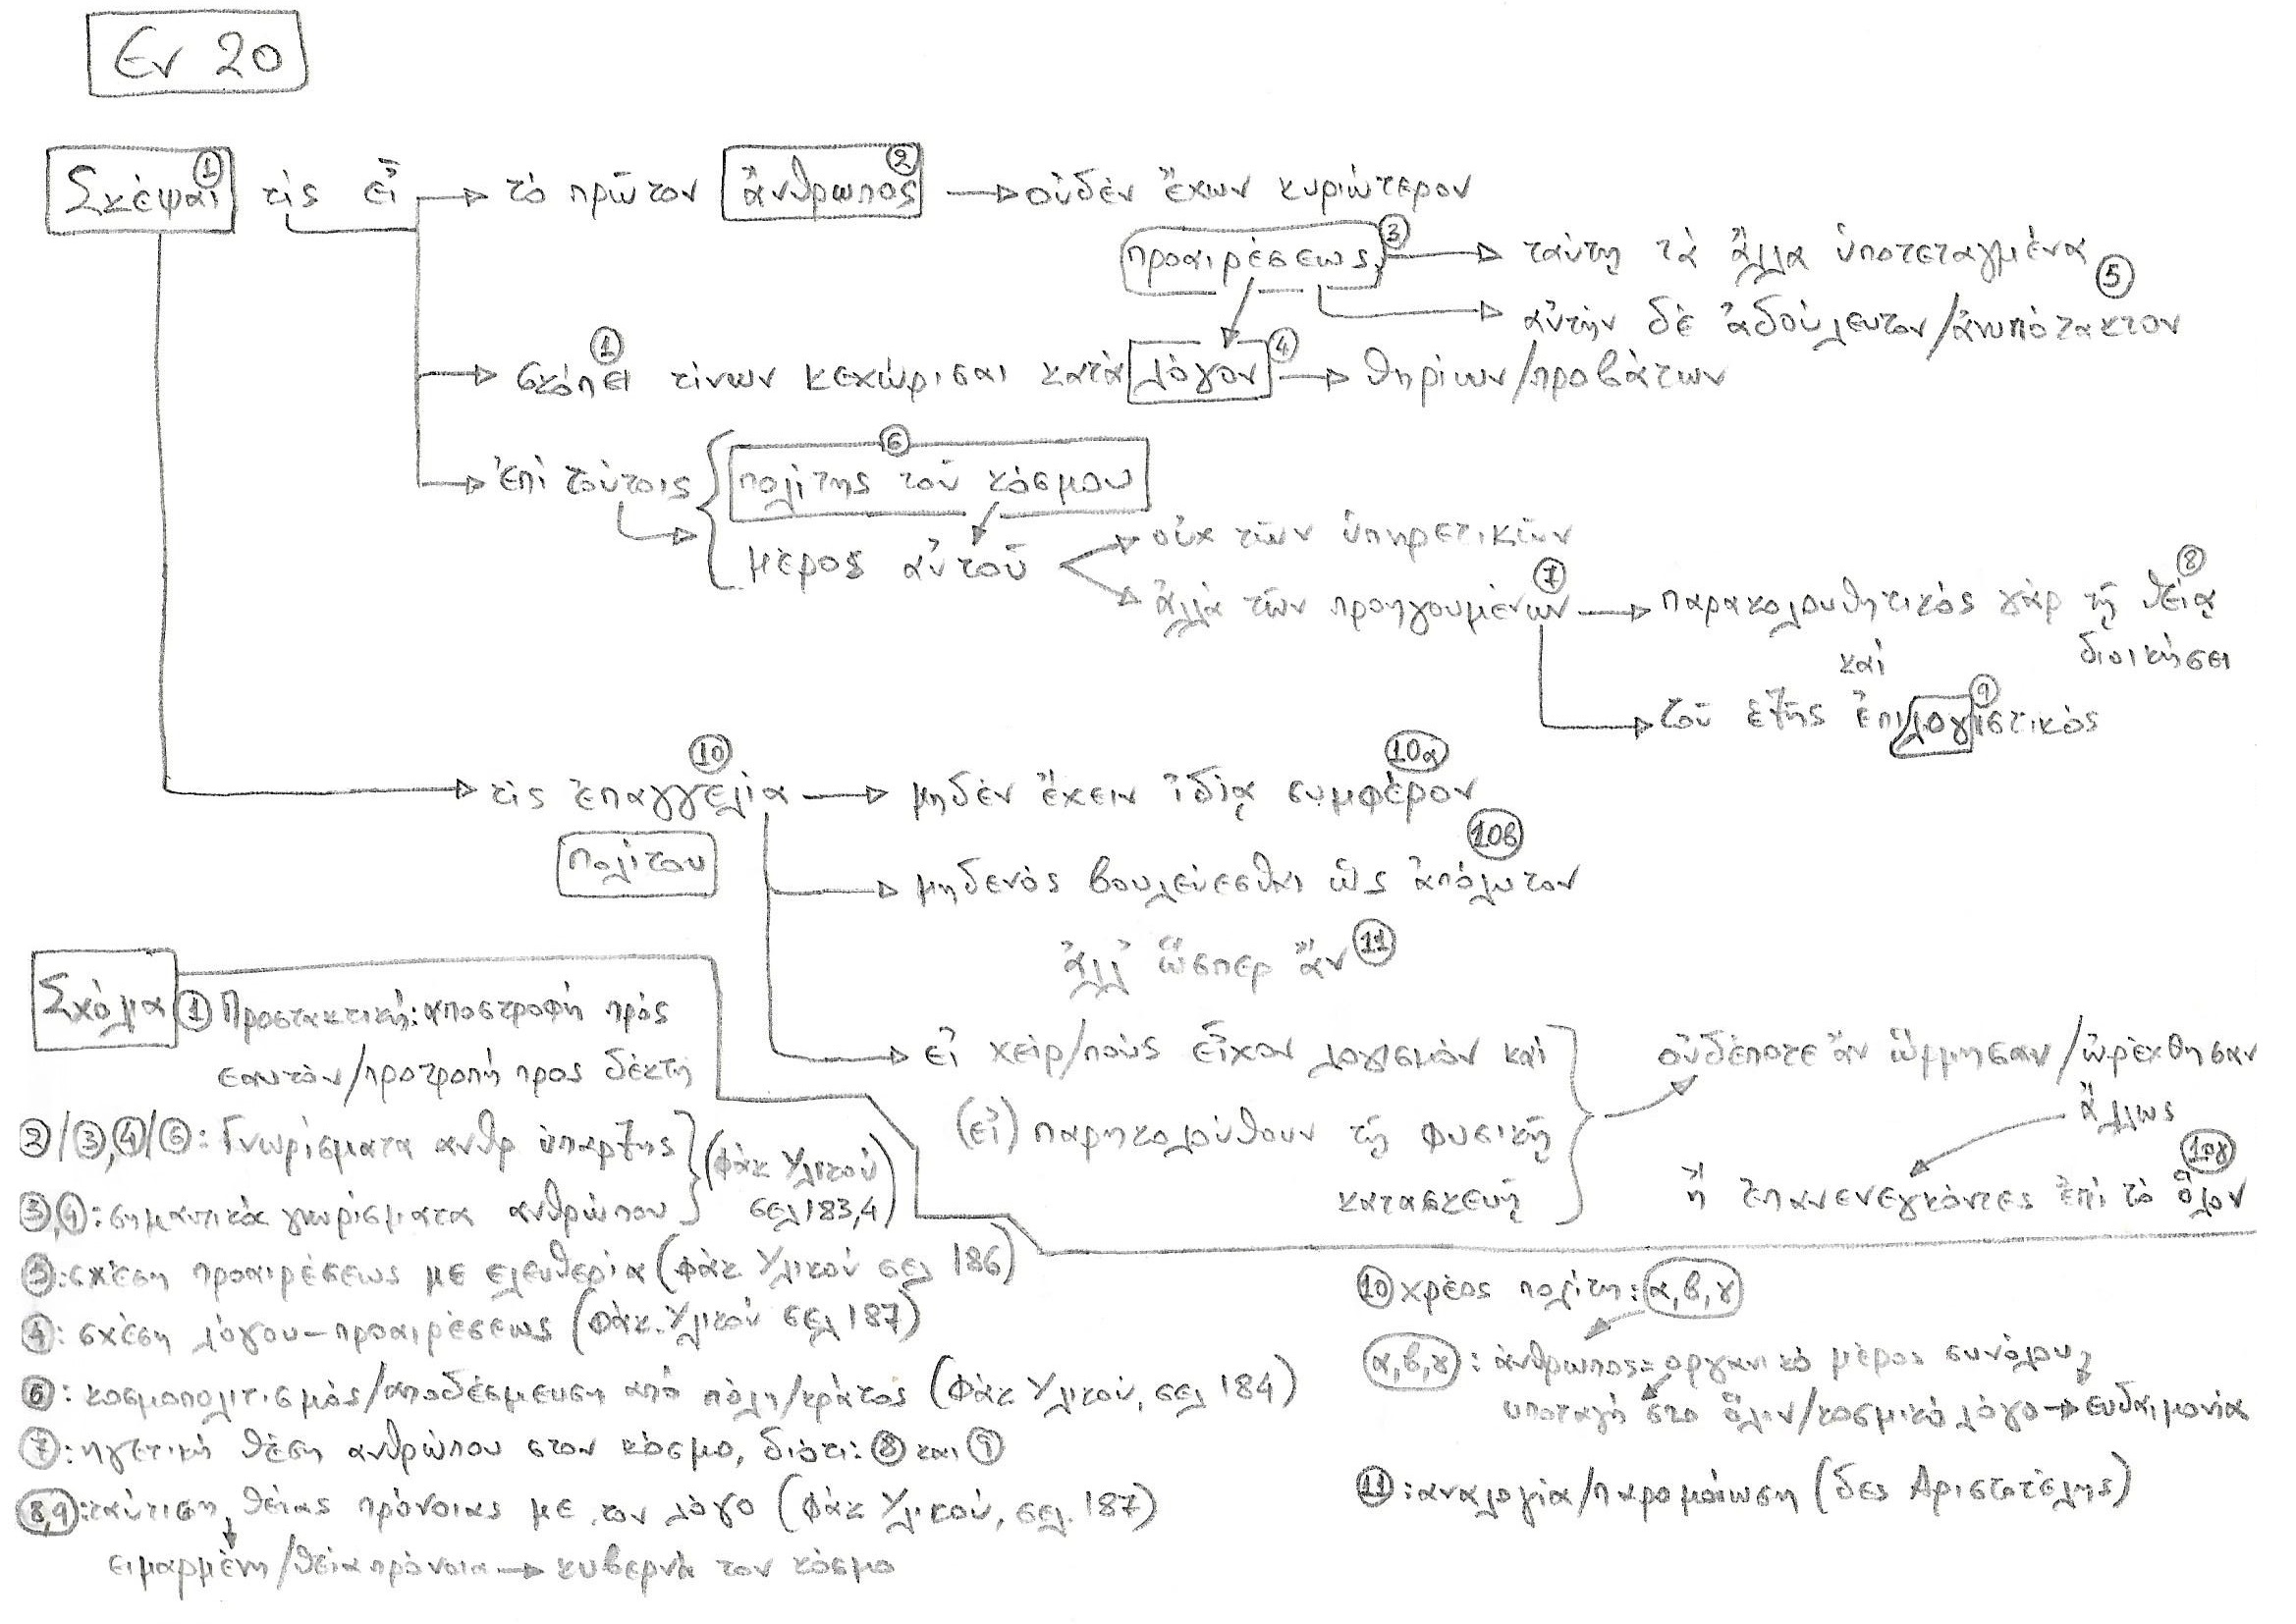 Εν 20
Σκέψαι ① τίς εἶ → τὸ πρῶτον ἄνθρωπος ② → οὐδὲν ἔχων κυριώτερον
προαιρέσεως, ③ → ταύτῃ τὰ ἄλλα ὑποτεταγμένα
→ αὐτὴν δὲ ἀδούλευτον/ἀνυπότακτον ⑤
→ σκόπει ① τίνων κεχώρισαι κατὰ λόγον ④ → θηρίων/προβάτων
→ ἐπὶ τούτοις { πολίτης τοῦ κόσμου ⑥
μέρος αὐτοῦ
οὐχ τῶν ὑπηρετικῶν
ἀλλὰ τῶν προηγουμένων ⑦ → παρακολουθητικὸς γὰρ τῇ θείᾳ ⑧
διοικήσει
καὶ
→ τοῦ ἑξῆς ἐπιλογιστικός ⑨
→ τίς ἐπαγγελία ⑩ → μηδὲν ἔχειν ἰδίᾳ συμφέρον 10α
πολίτου
→ μηδενὸς βουλεύεσθαι ὡς ἀπόλυτον 10β
ἀλλ' ὥσπερ ἄν ⑪
→ εἰ χεὶρ/ποὺς εἶχον λογισμὸν καὶ
(εἰ) παρηκολούθουν τῇ φυσικῇ
κατασκευῇ
οὐδέποτε ἄν ὥρμησαν/ὠρέχθησαν
ἄλλως
ἢ ἐπανενεγκόντες ἐπὶ τὸ ὅλον 10γ
Σχόλια ① Προστακτική: αποστροφή πρός
εαυτόν/προτροπή προς δέκτη
②/③,④/⑥: Γνωρίσματα ανθρ ύπαρξης
③,④: σημαντικά γνωρίσματα ανθρώπου
(Φάκ Υλικού
σελ 183,4)
⑤: σχέση προαιρέσεως με ελευθερία (Φάκ Υλικού σελ 186)
④: σχέση λόγου – προαιρέσεως (Φάκ. Υλικού σελ 187)
⑥: κοσμοπολιτισμός/αποδέσμευση από πόλη/κράτος (Φάκ Υλικού, σελ 184)
⑦: ηγετική θέση ανθρώπου στον κόσμο, διότι: ⑧ και ⑨
8,9: ταύτιση θείας πρόνοιας με τον λόγο (Φάκ Υλικού, σελ. 187)
ειμαρμένη/θεία πρόνοια → κυβερνά τον κόσμο
⑩ χρέος πολίτη: α, β, γ
α, β, γ: άνθρωπος = οργανικό μέρος συνόλου,
υποταγή στο όλον/κοσμικό λόγο → ευδαιμονία
⑪: αναλογία/παρομοίωση (δες Αριστοτέλης)